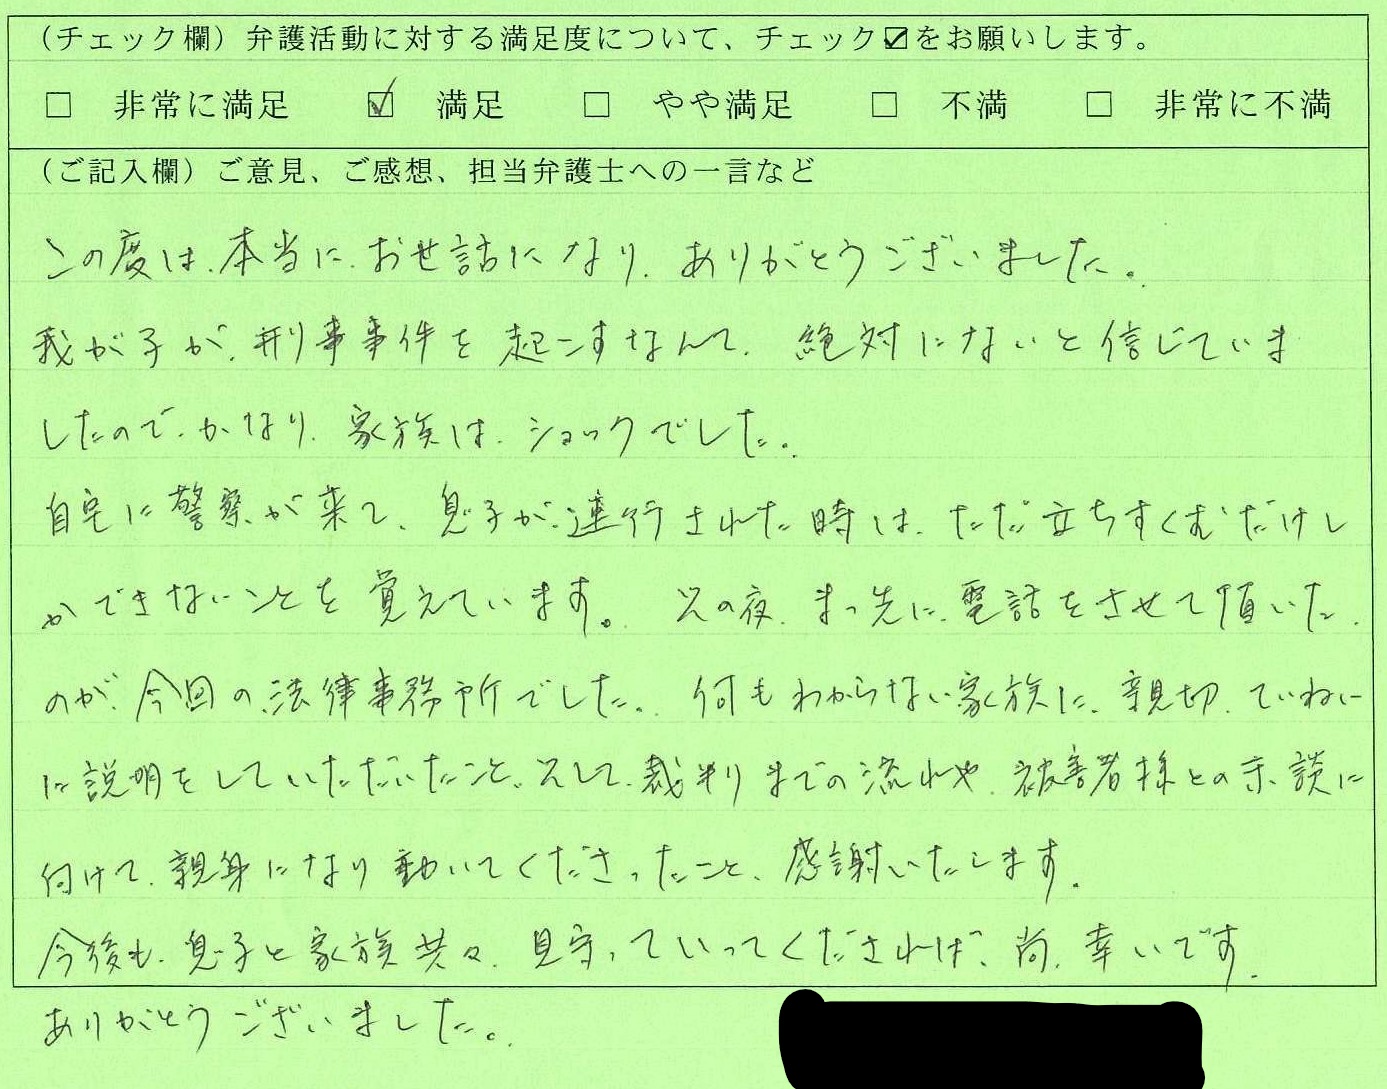 (チェック欄)弁護活動に対する満足度について、チェック☑をお願いします。
□ 非常に満足 ☑ 満足 □ やや満足 □ 不満 □ 非常に不満
(ご記入欄)ご意見、ご感想、担当弁護士への一言など
この度は、本当に、お世話になり、ありがとうございました。
我が子が、刑事事件を起こすなんて、絶対にないと信じていま
したので、かなり、家族は、ショックでした。
自宅に警察が来て、息子が連行された時は、ただ立ちすくむだけし
かできないことを覚えています。その夜、まっ先に、電話をさせて頂いた、
のが、今回の法律事務所でした。何もわからない家族に、親切、ていねい
に説明をしていただいたこと、そして、裁判までの流れや、被害者様との示談に
付けて、親身になり動いてくださったこと、感謝いたします。
今後も、息子と家族共々、見守っていってくだされば、尚、幸いです。
ありがとうございました。